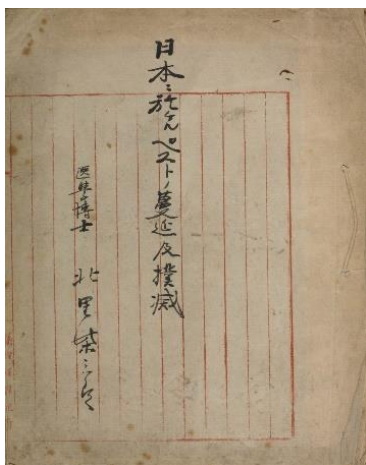 日本ニ於ケルペストノ蔓延及撲滅
医学博士 北里柴三郎